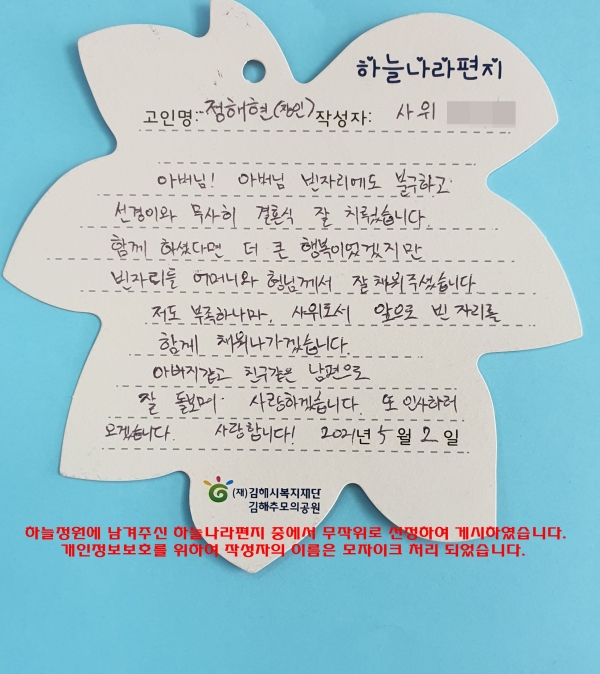 하늘나라편지
고인명: 정해현(장인) 작성자: 사위
아버님! 아버님 빈자리에도 불구하고
선경이와 무사히 결혼식 잘 치렀습니다.
함께 하셨다면 더 큰 행복이었겠지만
빈자리를 어머니와 형님께서 잘 채워주셨습니다
저도 부족하나마, 사위로서 앞으로 빈 자리를
함께 채워나가겠습니다.
아버지같고 친구같은 남편으로
잘 돌보며 사랑하겠습니다. 또 인사하러
오겠습니다. 사랑합니다! 2021년 5월 2일
(재)김해시복지재단
김해추모의공원
하늘정원에 남겨주신 하늘나라편지 중에서 무작위로 선정하여 게시하였습니다.
개인정보보호를 위하여 작성자의 이름은 모자이크 처리 되었습니다.